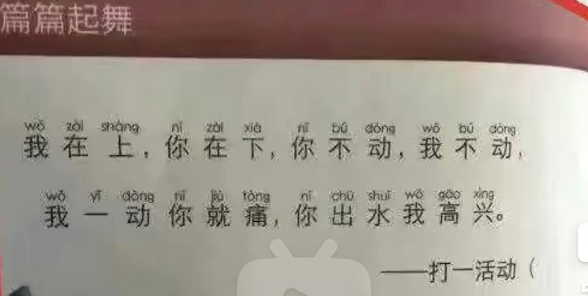 篇篇起舞
wǒ zài shàng nǐ zài xià nǐ bú dòng wǒ bú dòng
我在上，你在下，你不动，我不动，
wǒ yī dòng nǐ jiù tòng nǐ chū shuǐ wǒ gāo xìng
我一动你就痛，你出水我高兴。
——打一活动（